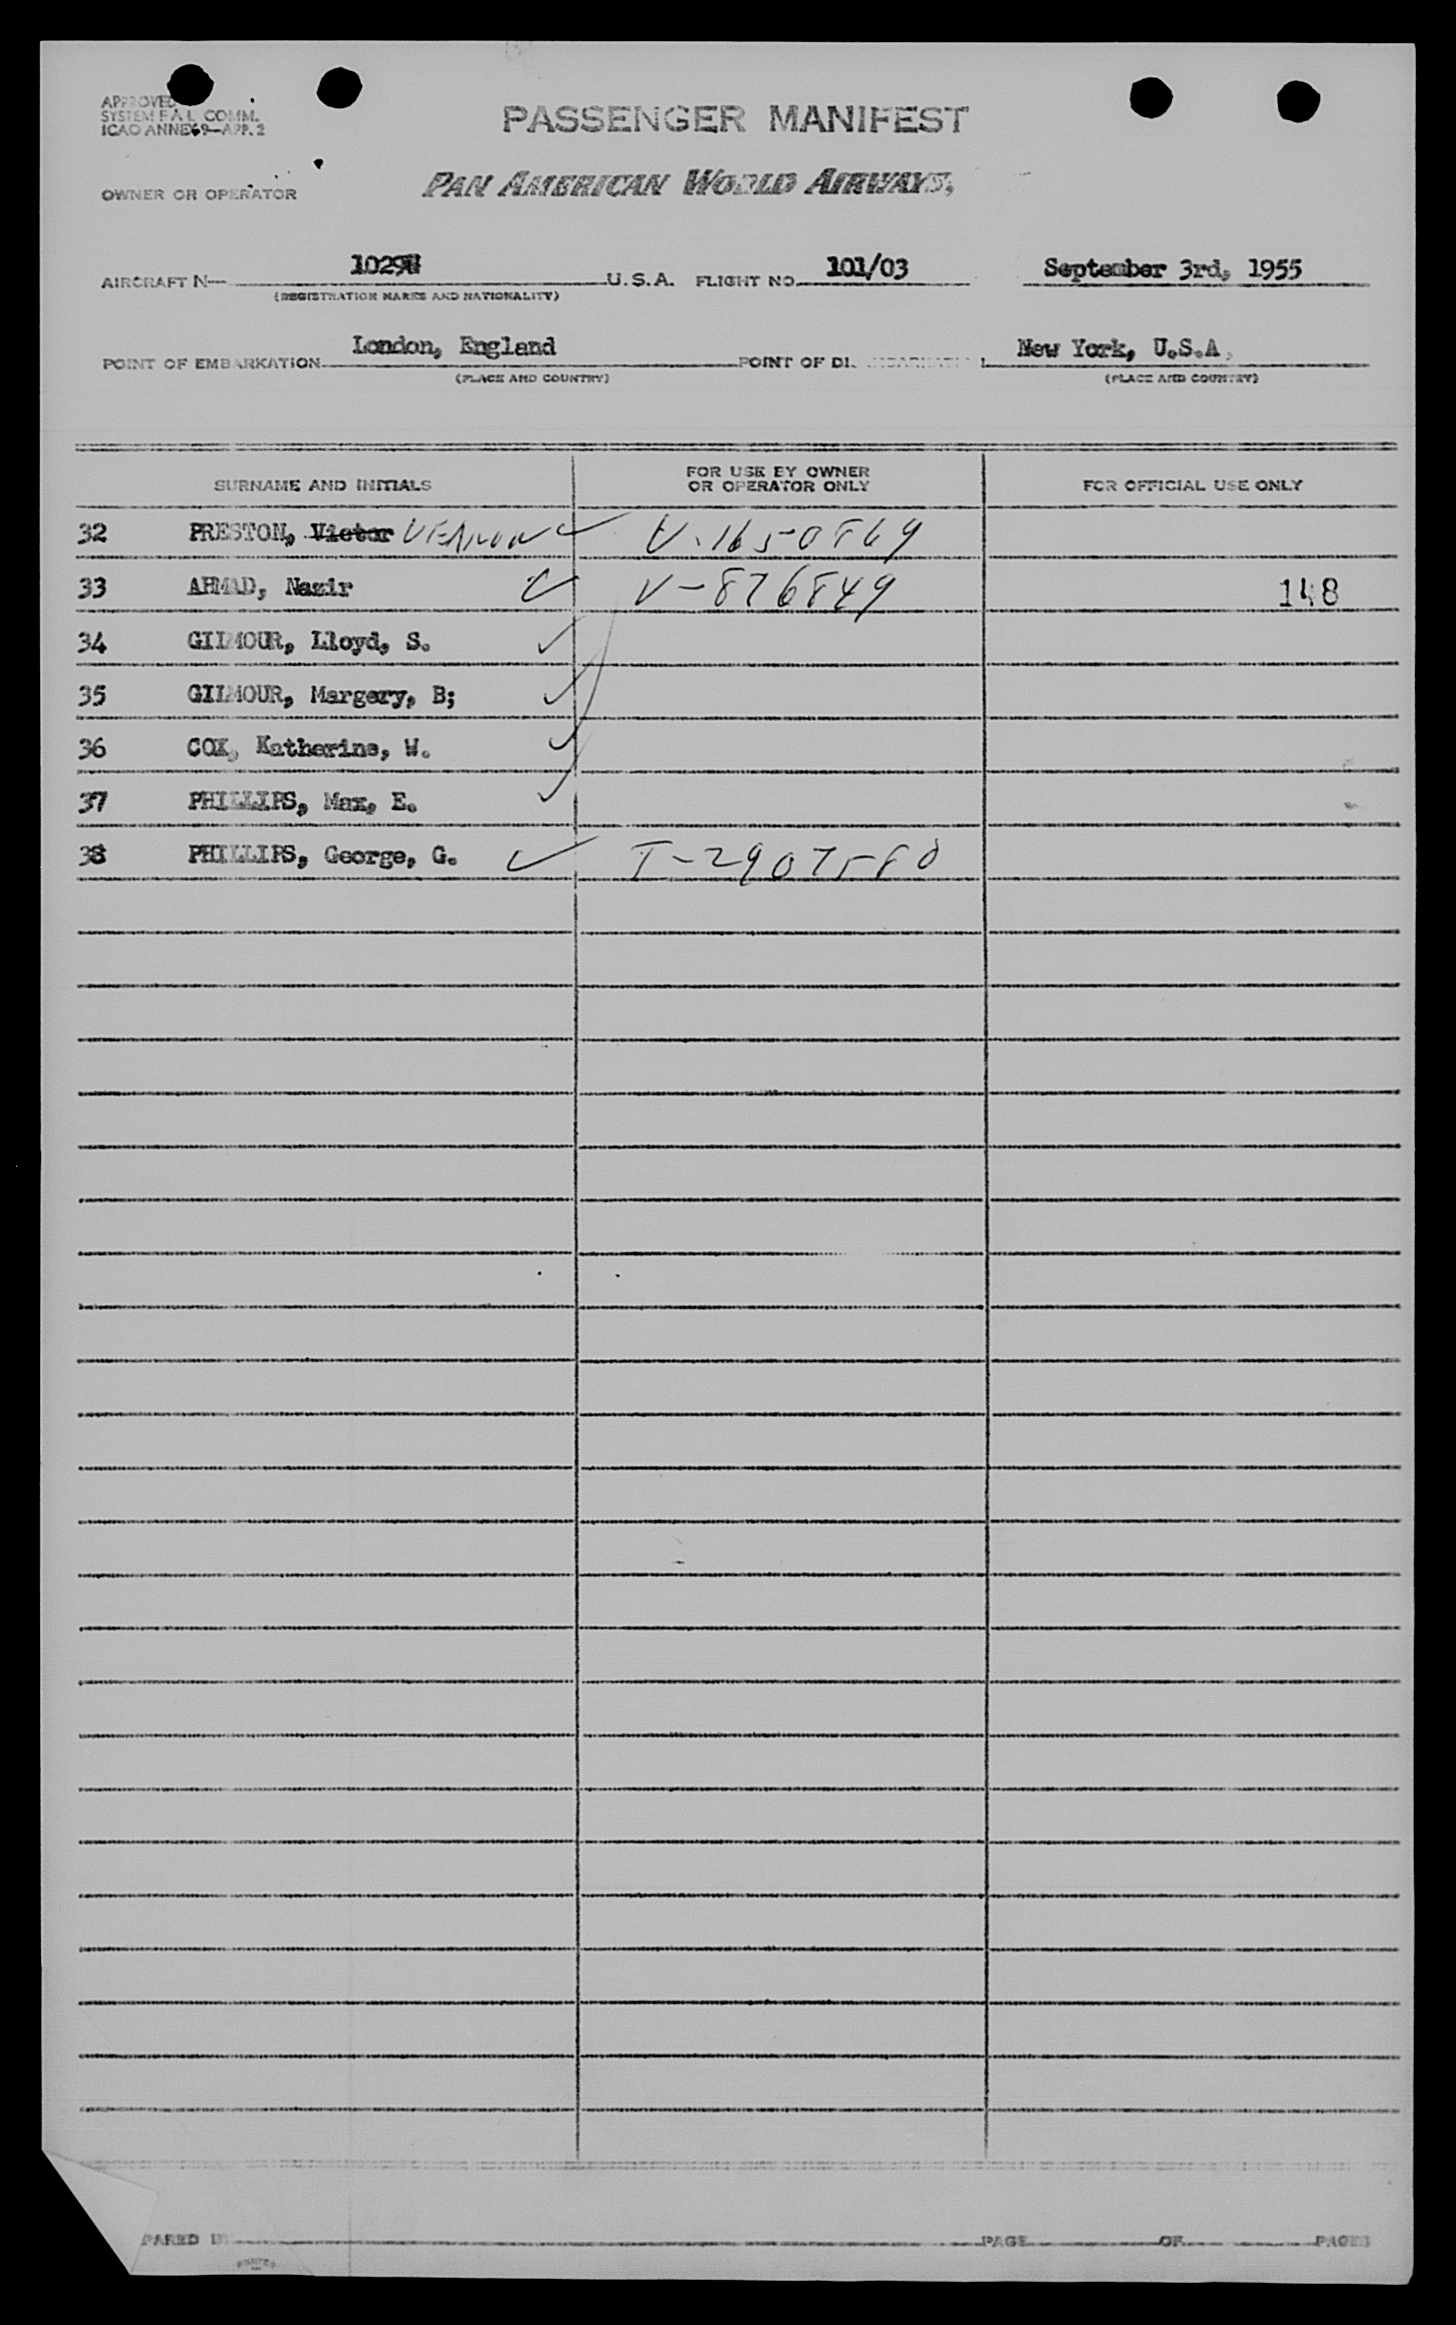 APPROVED
SYSTEM F.A.L. COMM.
ICAO ANNEX 9—APP. 2
PASSENGER MANIFEST
OWNER OR OPERATOR PAN AMERICAN WORLD AIRWAYS,
AIRCRAFT N— U.S.A. FLIGHT NO. 101/03 September 3rd, 1955
(REGISTRATION MARKS AND NATIONALITY)
POINT OF EMBARKATION London, England POINT OF New York, U.S.A.
(PLACE AND COUNTRY) (PLACE AND COUNTRY)
SURNAME AND INITIALS FOR USE BY OWNER OR OPERATOR ONLY FOR OFFICIAL USE ONLY
32 PRESTON, Victor VERNON V-1650869
33 AHMAD, Nazir V-876849 148
34 GILMOUR, Lloyd, S.
35 GILMOUR, Margery, B;
36 COX, Katherine, W.
37 PHILLIPS, Max, E.
38 PHILLIPS, George, G. T-2907580
PARED BY PAGE OF PAGES